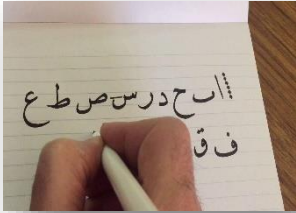 ا ب ح د ر س ص ط ع
ف ق